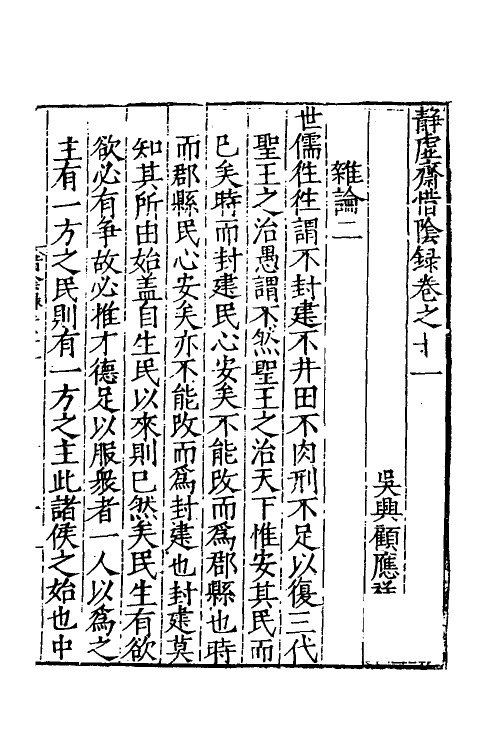 靜虛齋惜陰録卷之十一
吳興顧應祥
雜論二
世儒徃徃謂不封建不井田不肉刑不足以復三代
聖王之治愚謂不然聖王之治天下惟安其民而
已矣時而封建民心安矣不能改而爲郡縣也時
而郡縣民心安矣亦不能改而爲封建也封建莫
知其所由始盖自生民以來則已然矣民生有欲
欲必有争故必推才德足以服衆者一人以爲之
主有一方之民則有一方之主此諸侯之始也中